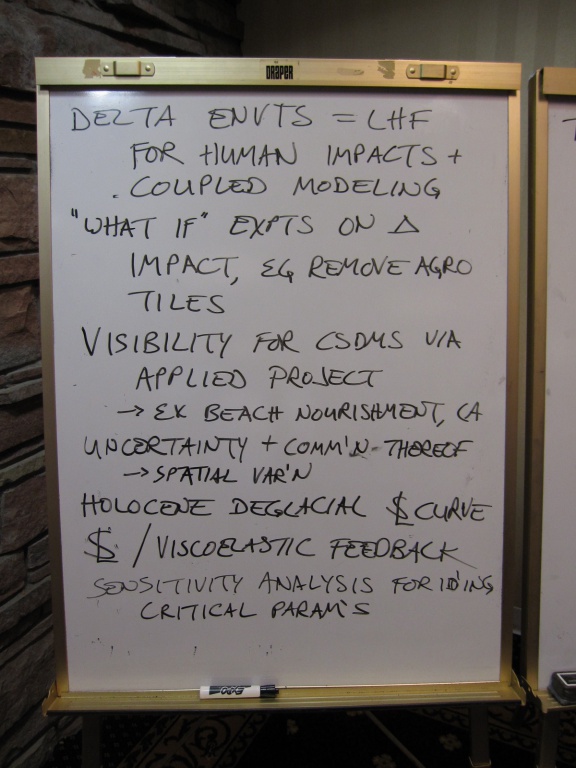 DRAPER
DELTA ENVTS = LHF
FOR HUMAN IMPACTS +
COUPLED MODELING
"WHAT IF" EXPTS ON Δ
IMPACT, EG REMOVE AGRO
TILES
VISIBILITY FOR CSDMS VIA
APPLIED PROJECT
→ EX BEACH NOURISHMENT, CA
UNCERTAINTY + COMM'N THEREOF
→ SPATIAL VAR'N
HOLOCENE DEGLACIAL SL CURVE
SL / VISCOELASTIC FEEDBACK
SENSITIVITY ANALYSIS FOR ID'ING
CRITICAL PARAM'S
EXPO